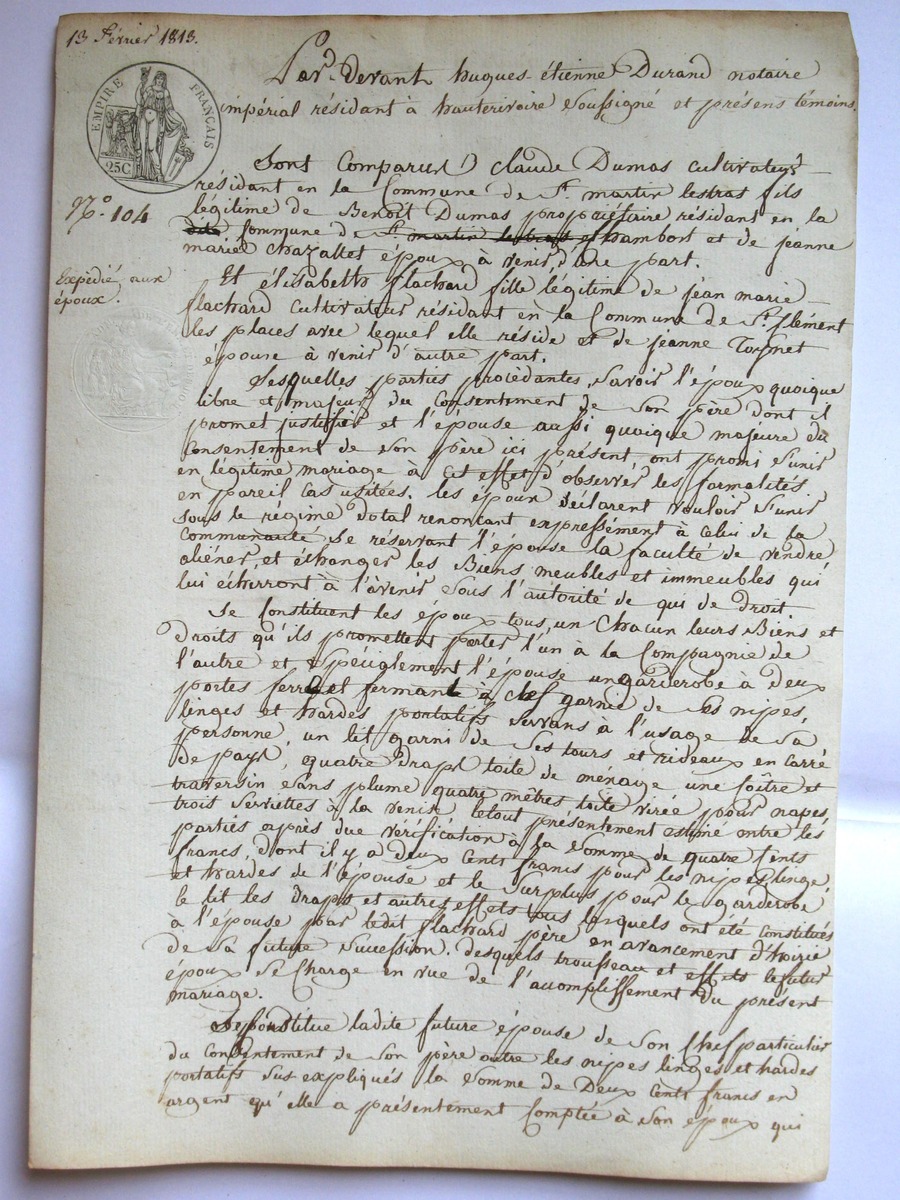 13 Février 1813.
Par-devant hugues étienne Durand notaire
impérial résidant à hauterivoire soussigné et présens témoins
EMPIRE FRANÇAIS
25C
N.o 104
Sont Comparus claude Dumas cultivateur
résidant en la Commune de St. martin lestras fils
légitime de Benoit Dumas propriétaire résidant en la
dite Commune de St martin lestras chambost et de jeanne
marie chazallet époux à venir d'une part.
Expédié aux
époux.
Et élisabeth flachard fille légitime de jean marie
flachard cultivateur résidant en la Commune de St. Clément
les places avec lequel elle réside et de jeanne
épouse à venir d'autre part.
Lesquelles parties procédantes, savoir l'époux quoique
libre et majeur du Consentement de son père dont il
promet justifier et l'épouse aussi quoique majeure du
Consentement de son père ici présent ont promi s'unir
en légitime mariage à cet effet d'observer les formalités
en pareil cas usitées. les époux déclarent vouloir s'unir
sous le régime dotal renonçant expressément à celui de la
Communauté se réservant l'épouse la faculté de vendre
aliéner, et échanger les Biens meubles et immeubles qui
lui écherront à l'avenir sous l'autorité de qui de droit
Se Constituent les époux tous un chacun leurs Biens et
droits qu'ils promettent porter l'un à la Compagnie de
l'autre et spécialement l'épouse un garderobe à deux
portes ferré et fermant à clef garnie de ses nipes,
linges et hardes portatifs servans à l'usage de sa
personne, un lit garni de ses tours et rideaux en carré
de pays, quatre draps toile de ménage une coître et
traversin sans plume quatre mètres toile virée pour napes,
trois serviettes à la venise letout présentement estimé entre les
parties après due vérification à la somme de quatre Cents
francs, dont il y a deux Cents francs pour les nipes linge
et hardes de l'épouse et le surplus pour le garderobe
le lit les draps et autres effets tous lesquels ont été constitués
à l'épouse par ledit flachard père en avancement d'hoirie
de sa future succession. desquels trousseau et effets le futur
époux se charge en vue de l'acomplissement du présent
mariage.
Se Constitue ladite future épouse de son chef particulier
du Consentement de son père outre les nipes linges et hardes
portatifs sus expliqués la somme de Deux Cents francs en
argent qu'elle a présentement Comptée à son époux qui